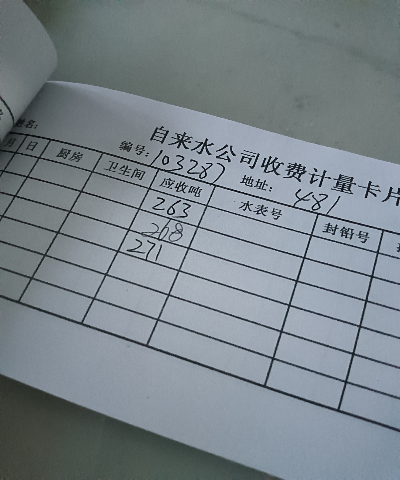 自来水公司收费计量卡片
名: 编号: 103287 地址: 481
月 日 厨房 卫生间 应收吨 水表号 封铅号
263
268
271